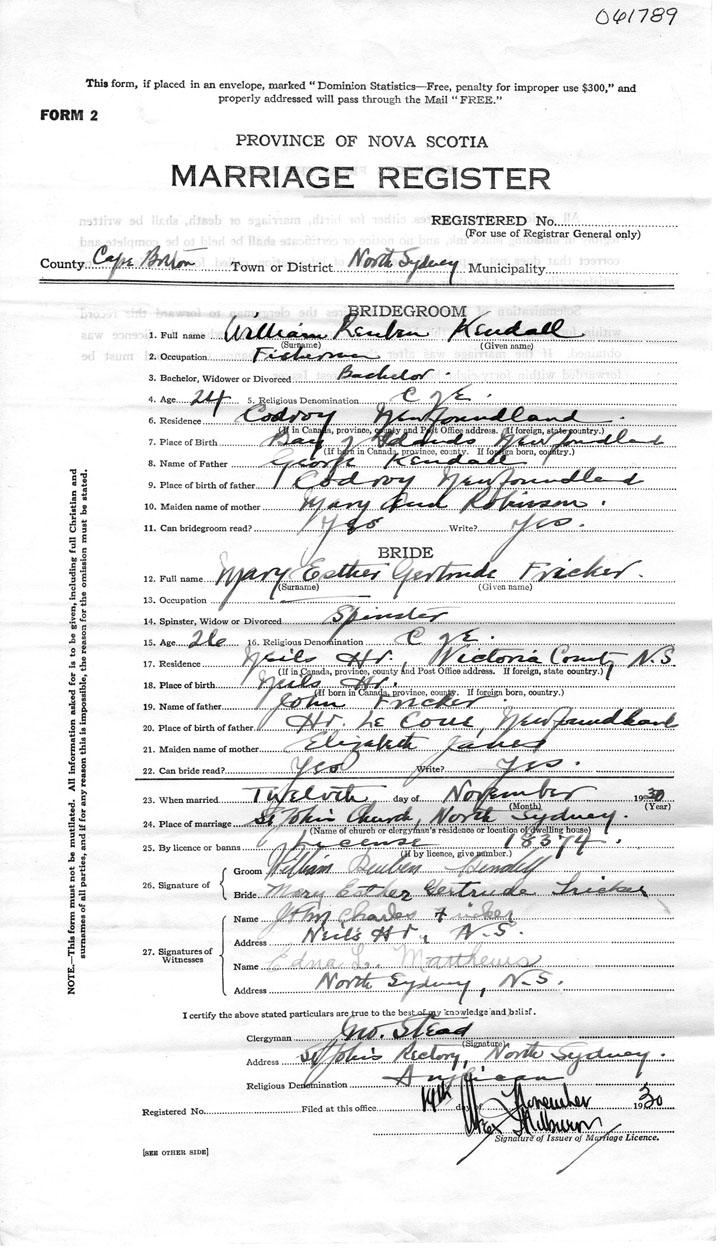 061789
This form, if placed in an envelope, marked "Dominion Statistics—Free, penalty for improper use $300," and
properly addressed will pass through the Mail "FREE."
FORM 2
PROVINCE OF NOVA SCOTIA
MARRIAGE REGISTER
REGISTERED No.
(For use of Registrar General only)
County Cape Breton Town or District North Sydney Municipality
BRIDEGROOM
1. Full name William Reuben Kendall
(Surname) (Given name)
2. Occupation Fisherman
3. Bachelor, Widower or Divorced Bachelor
4. Age 24 5. Religious Denomination C of E.
6. Residence Codroy Newfoundland
(If in Canada, province, county and Post Office address. If foreign, state country.)
7. Place of Birth Bay of Islands Newfoundland
(If born in Canada, province, county. If foreign born, country.)
8. Name of Father George Kendall
9. Place of birth of father Codroy Newfoundland
10. Maiden name of mother Mary Ann Robinson.
11. Can bridegroom read? Yes Write? Yes.
BRIDE
12. Full name Mary Esther Gertrude Fricker.
(Surname) (Given name)
13. Occupation
14. Spinster, Widow or Divorced Spinster
15. Age 26 16. Religious Denomination C of E.
17. Residence Neils Hr. Victoria County N.S.
(If in Canada, province, county and Post Office address. If foreign, state country.)
18. Place of birth Neils Hr.
(If born in Canada, province, county. If foreign born, country.)
19. Name of father John Fricker
20. Place of birth of father Hr. Le Cou, Newfoundland
21. Maiden name of mother Elizabeth Janes
22. Can bride read? Yes Write? Yes.
23. When married Twelvth day of November 1930
(Month) (Year)
24. Place of marriage St John's Church, North Sydney.
(Name of church or clergyman's residence or location of dwelling house)
25. By licence or banns License 18374.
(If by licence, give number.)
26. Signature of
Groom William Reuben Kendall
Bride Mary Esther Gertrude Fricker
27. Signatures of Witnesses
Name John Charles Fricker
Address Neils Hr, N.S.
Name Edna L. Matthews
Address North Sydney, N.S.
I certify the above stated particulars are true to the best of my knowledge and belief.
Clergyman Jno. Stead
(Signature)
Address St John's Rectory, North Sydney.
Religious Denomination Anglican
Registered No. Filed at this office 14th day of November 1930
Signature of Issuer of Marriage Licence.
[SEE OTHER SIDE]
NOTE.—This form must not be mutilated. All information asked for is to be given, including full Christian and
surnames of all parties, and if for any reason this is impossible, the reason for the omission must be stated.